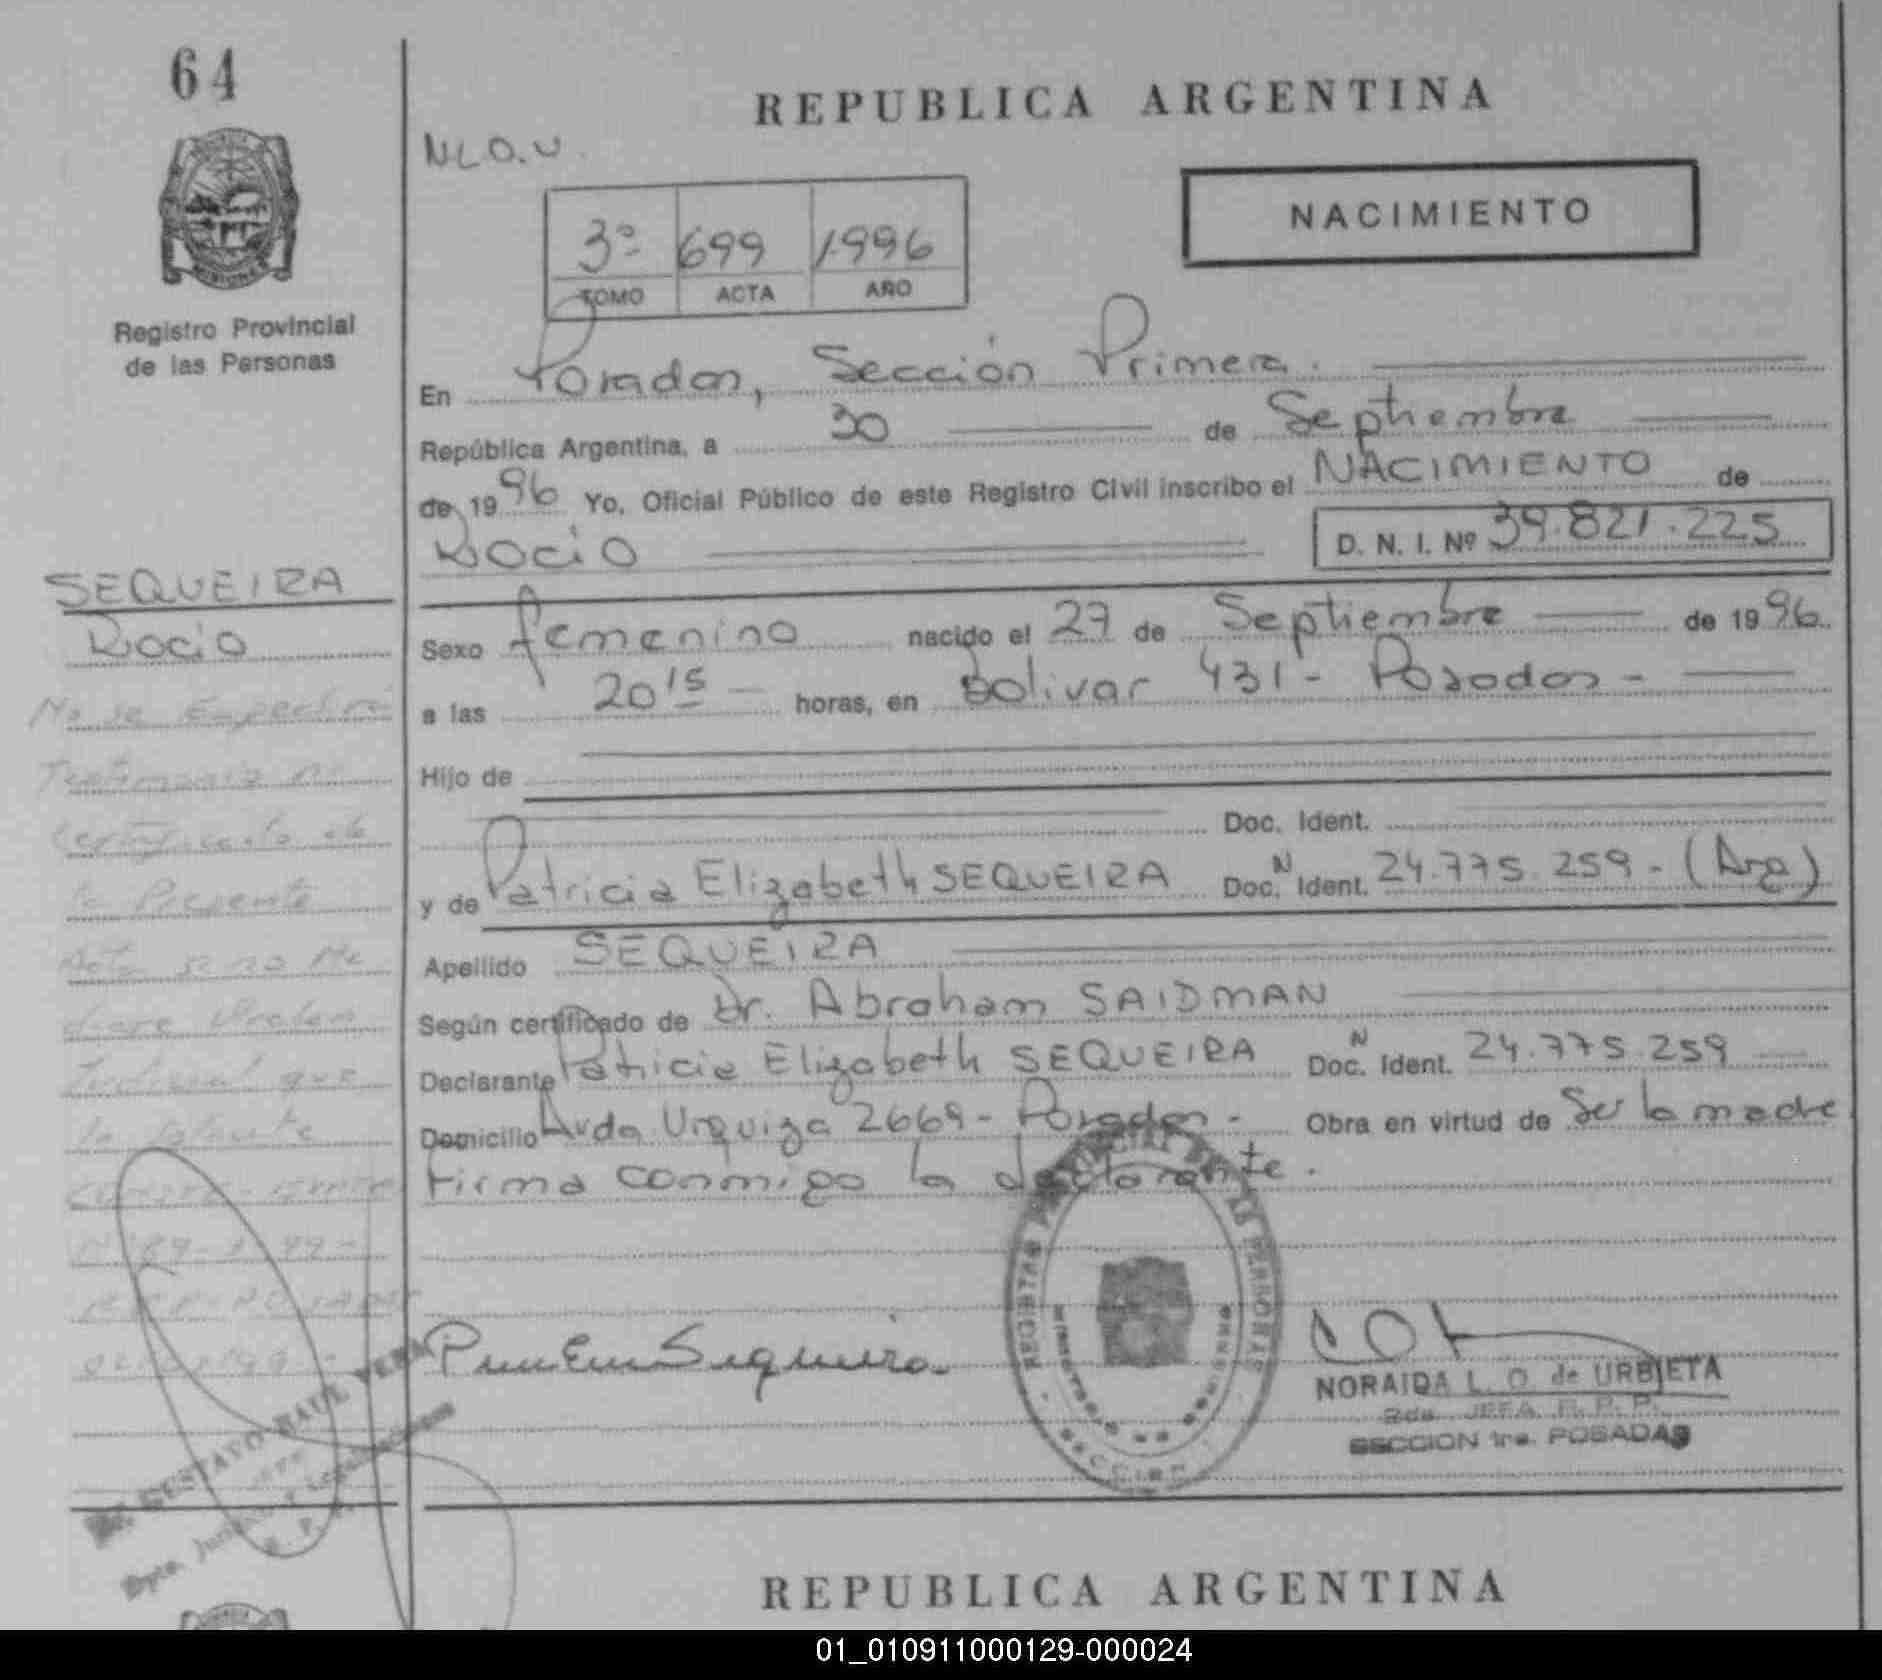 64
REPUBLICA ARGENTINA
N L O. U.
NACIMIENTO
3º 699 1996
TOMO ACTA AÑO
MISIONES
Registro Provincial
de las Personas
En Posadas, Sección Primera.
República Argentina, a 30 de Septiembre
de 1996 Yo, Oficial Público de este Registro Civil inscribo el NACIMIENTO de
Rocio D. N. I. Nº 39.821.225
SEQUEIRA
Rocio
Sexo femenino nacido el 27 de Septiembre de 1996.
a las 20 15 horas, en Bolivar 431 - Posadas -
Hijo de
Doc. Ident.
y de Patricia Elizabeth SEQUEIRA Doc. N Ident. 24.775.259 - (Arg)
Apellido SEQUEIRA
Según certificado de Dr. Abraham SAIDMAN
Declarante Patricia Elizabeth SEQUEIRA Doc. N Ident. 24.775.259
Domicilio Avda Urquiza 2669 - Posadas - Obra en virtud de Ser la madre
firma conmigo la declarante.
No se
Testimonio ni
Certificado de
la Presente
Acta si no Me
diare Orden
Judicial que
REGISTRO PROVINCIAL DE LAS PERSONAS
MINISTERIO DE GOBIERNO
Sequeira
NORAIDA L. O. de URBIETA
2da. JEFA R. P. P.
SECCION 1ra. POSADAS
GUSTAVO RAUL VERA
Dpto.
REPUBLICA ARGENTINA
01_010911000129-000024